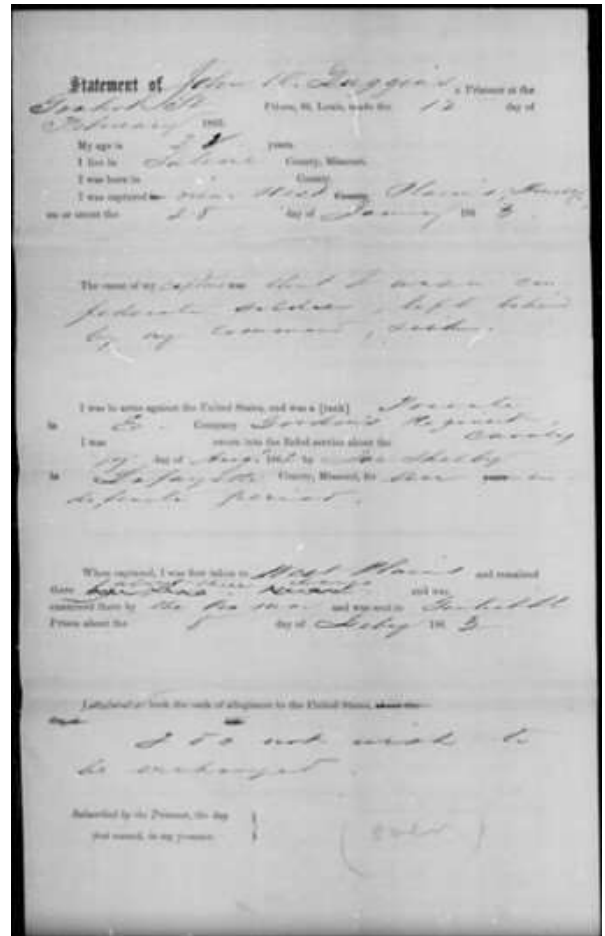 Statement of John W. Duggins a Prisoner at the
Gratiot St Prison, St. Louis, made the 12 day of
February 1863.
My age is years.
I live in Saline County, Missouri.
I was born in " County.
I was captured near West Plains,
on or about the 28 day of January 1863
The cause of my capture was that I was a con
federate soldier, left behind
by my command, sick.
I was in arms against the United States, and was a [rank] Private
in E. Company Gordon's Regiment,
Cavalry
I was sworn into the Rebel service about the
day of August 186 by Jo Shelby
in Lafayette County, Missouri, for
definite period.
When captured, I was first taken to West Plains and remained
there and was
examined there by the and was sent to Gratiot St
Prison about the 8 day of Feby 1863
took the oath of allegiance to the United States, about the
I do not wish to
be exchanged.
Subscribed by the Prisoner, the day
in my presence.
(over)